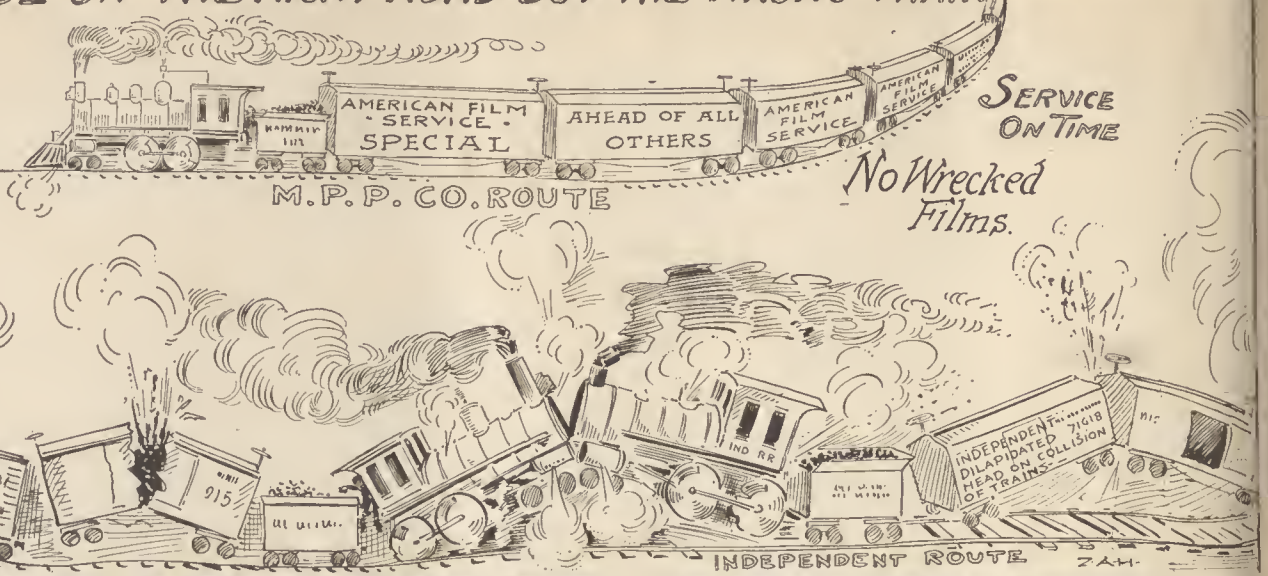 AMERICAN FILM
• SERVICE •
SPECIAL
AHEAD OF ALL
OTHERS
AMERICAN
FILM
SERVICE
AMERICAN
FILM
SERVICE
SERVICE
ON TIME
M.P.P. CO. ROUTE
No Wrecked
Films.
915
IND RR
INDEPENDENT
DILAPIDATED 71618
HEAD ON COLLISION
OF TRAINS
INDEPENDENT ROUTE
ZAH-